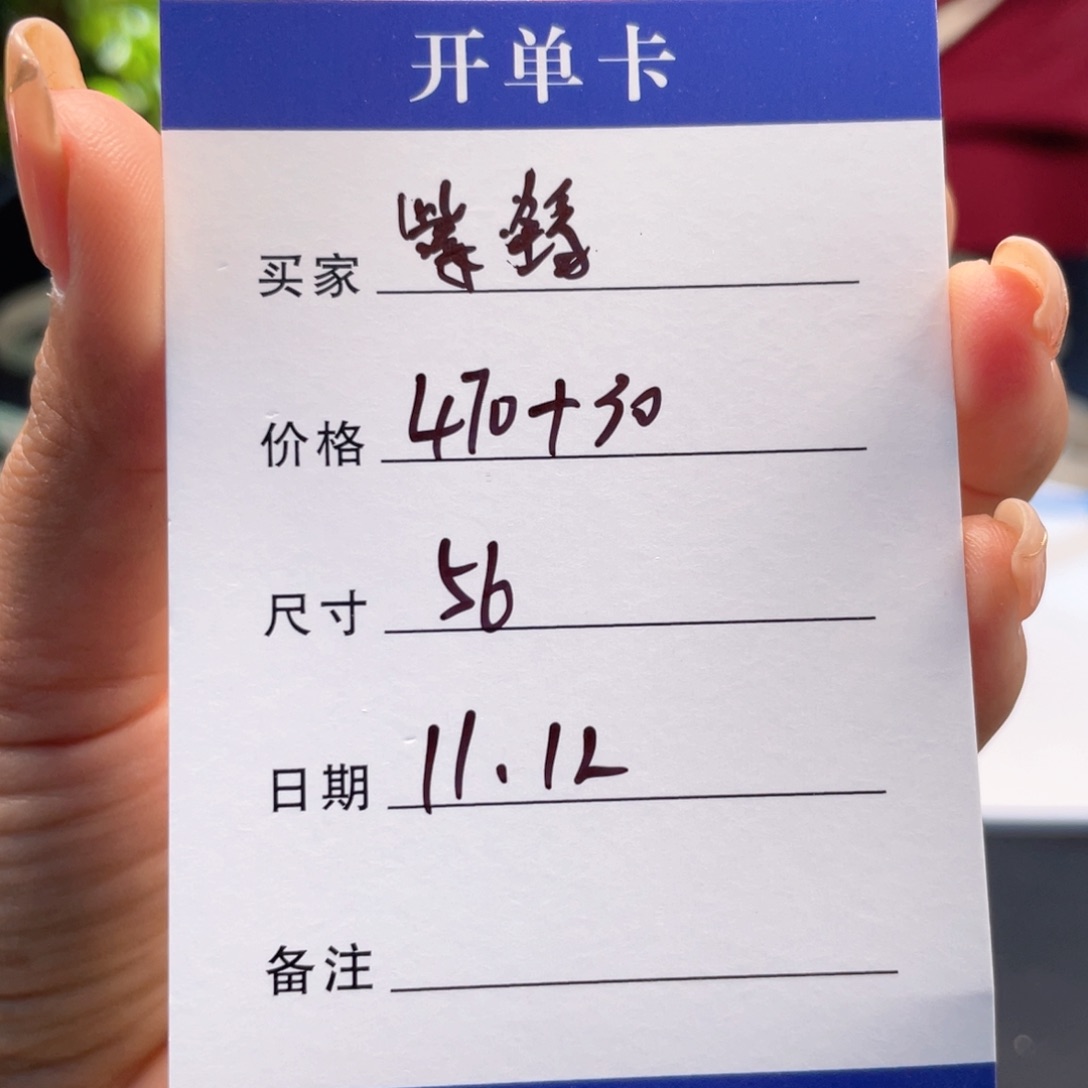 开单卡
买家
价格 470+30
尺寸 56
日期 11.12
备注